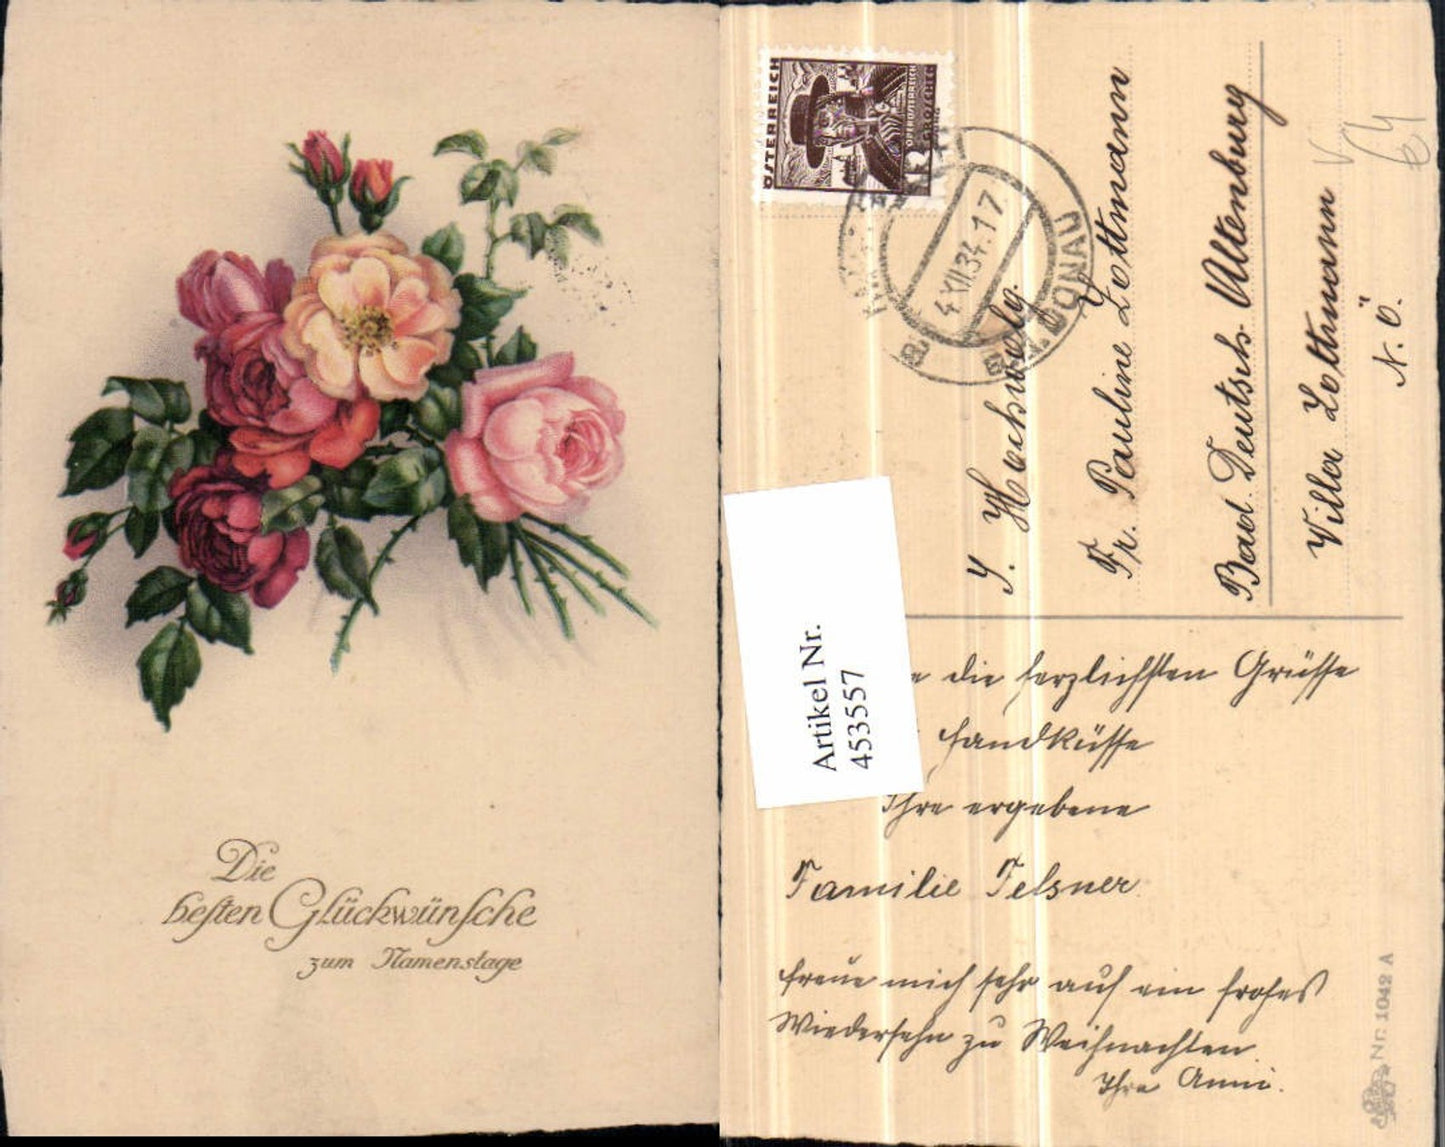 Die
besten Glückwünsche
zum Namenstage
ÖSTERREICH
OBERÖSTERREICH
12 GROSCHEN
4.XII.34.17
DONAU
J. Hochwolg.
Fr. Pauline Zottmann
Bad Deutsch Altenburg
Villa Zottmann
N.Ö.
64
Artikel Nr.
453557
die herzlichsten Grüsse
Handküsse
Ihre ergebene
Familie Telsner
freue mich sehr auf ein frohes
Wiedersehn zu Weihnachten.
Ihre Anni.
Nr. 1042 A